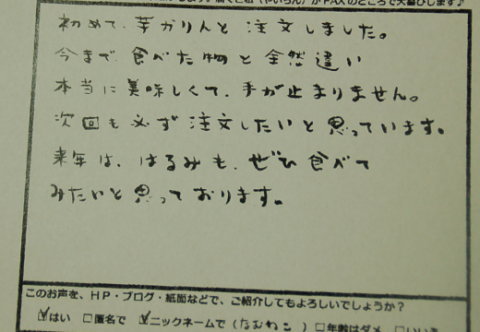 初めて、芋かりんと注文しました。
今まで食べた物と全然違い
本当に美味しくて、手が止まりません。
次回も必ず注文したいと思っています。
来年は、はるみも、ぜひ食べて
みたいと思っております。
このお声を、HP・ブログ・紙面などで、ご紹介してもよろしいでしょうか？
☑はい □匿名で ☑ニックネームで（なむねこ）□年齢はダメ □いいえ